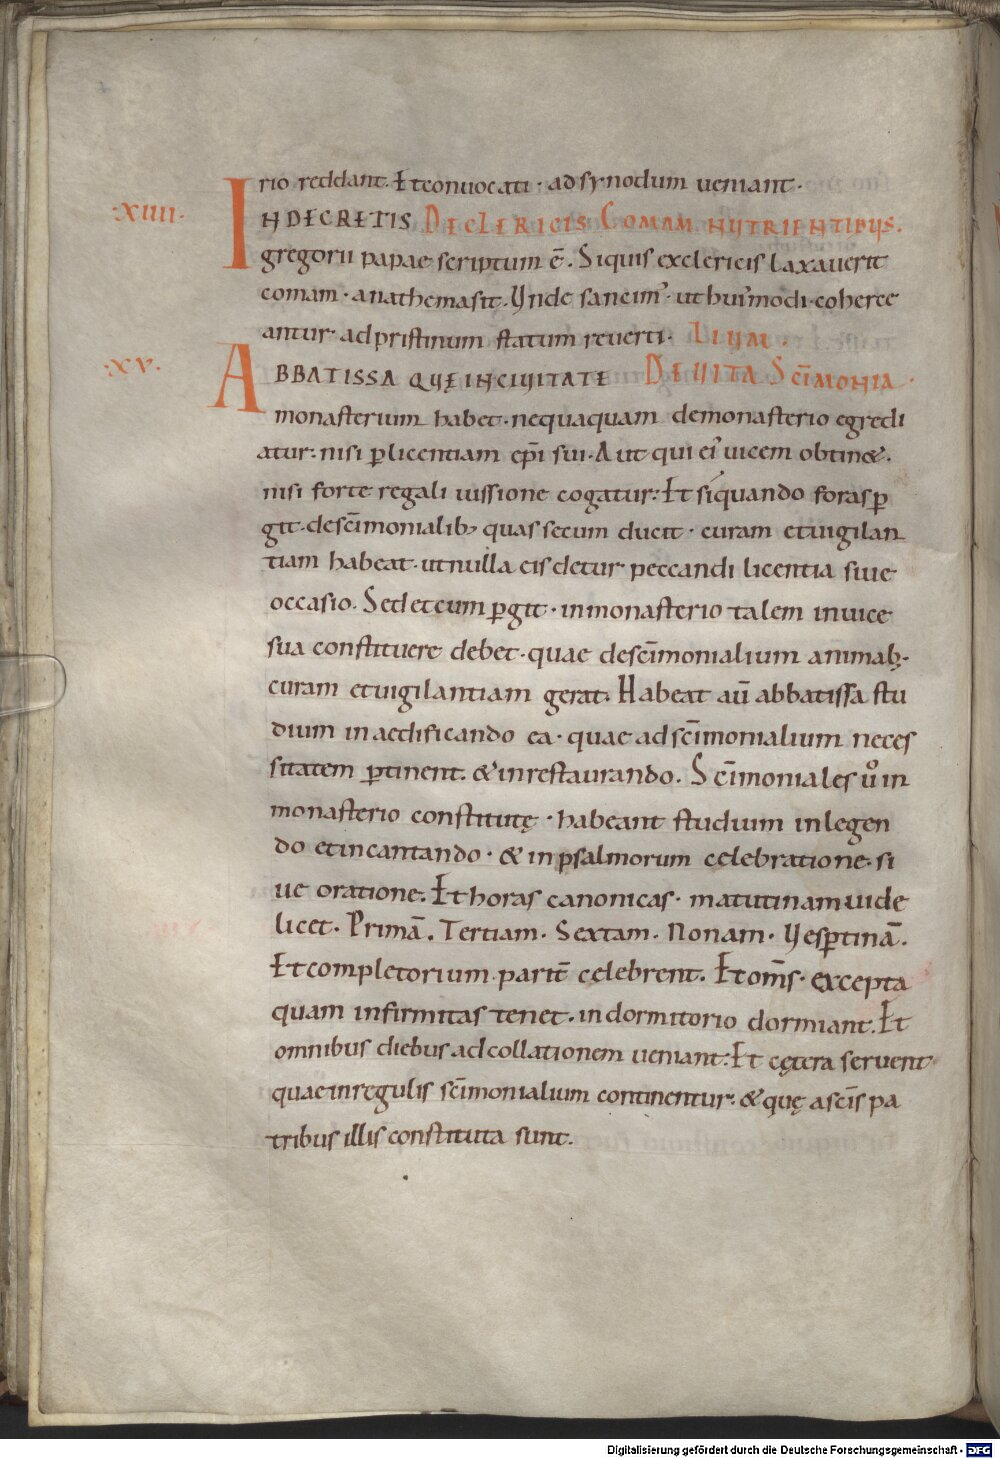 rio reddant. Et conuocati · ad synodum ueniant ·
:XIIII· IN DECRETIS DE CLERICIS COMAM NUTRIENTIBUS.
gregorii papae scriptum ē. Siquis exclericis laxauerit
comam · anathema sit. Unde sancim' · ut hui'modi · coherce
antur · ad pristinum statum reuerti · LIUM ·
:XV· ABBATISSA QUE IN CIUITATE DE UITA SCĪMONIA·
monasterium habet · nequaquam demonasterio egredi
atur: nisi ꝑ licentiam epī sui · Aut qui ei' uicem obtin&.
nisi forte regali iussione cogatur: Et siquando foras ꝑ
git · descīmonialib; quas secum ducit · curam et uigilan
tiam habeat · ut nulla eis detur peccandi licentia siue
occasio. Sed et cum ꝑgit · in monasterio talem in uice
sua constituere debet · quae descīmonialium animab;·
curam et uigilantiam gerat. Habeat aū abbatissa stu
dium in aedificando ea · quae ad scīmonialium neces
sitatem ꝑtinent. & in restaurando. Scīmoniales uͦ in
monasterio constitutę · habeant studium in legen
do et incantando · & in psalmorum celebratione · si
ue oratione. Et horas canonicas · matutinam uide
licet · Primā. Tertiam · Sextam · Nonam · Uesꝑtinā.
Et completorium parit̄ celebrent. Et om̄s · excepta
quam infirmitas tenet · in dormitorio dormiant. Et
omnibus diebus ad collationem ueniant: Et cętera seruent
quae in regulis scīmonialium continentur · & quę a scīs pa
tribus illis constituta sunt.
Digitalisierung gefördert durch die Deutsche Forschungsgemeinschaft - DFG